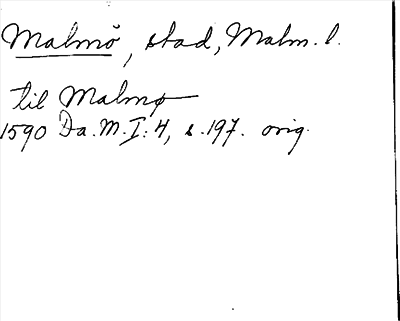 Malmö, stad, Malm. l.
til Malmø
1590 Da.M.I:4, s.197. orig.